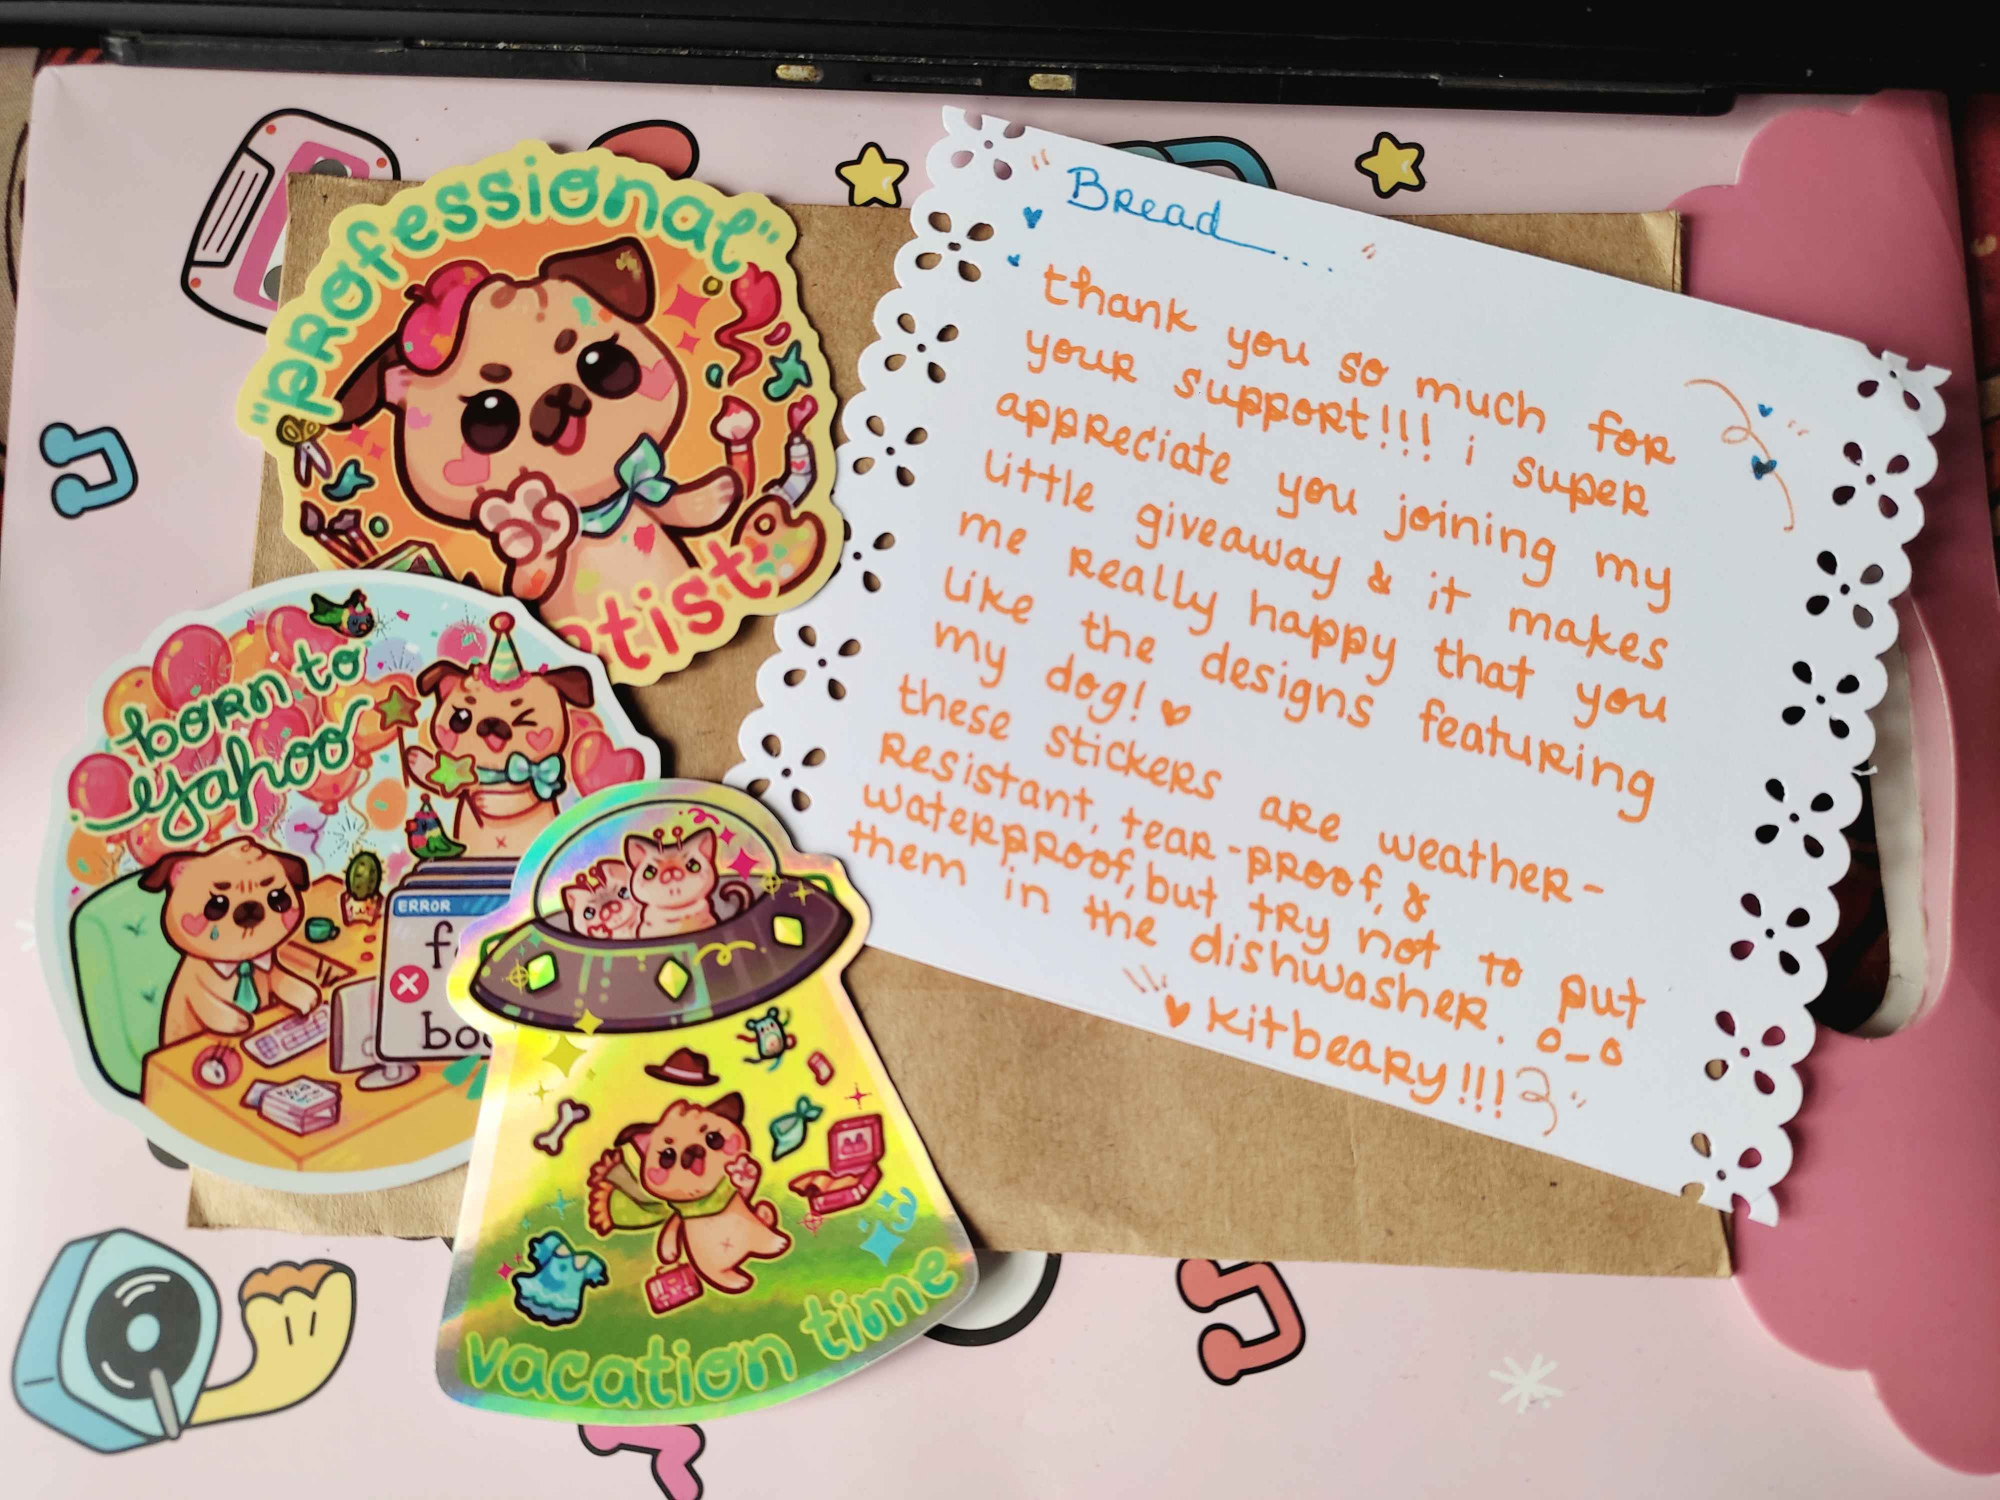 "professional"
artist
born to
yahoo
ERROR
vacation time
Bread...
thank you so much for
your support!!! i super
appreciate you joining my
little giveaway & it makes
me really happy that you
like the designs featuring
my dog!
these stickers are weather-
resistant, tear-proof, &
waterproof, but try not to put
them in the dishwasher. o_o
kitbeary!!!